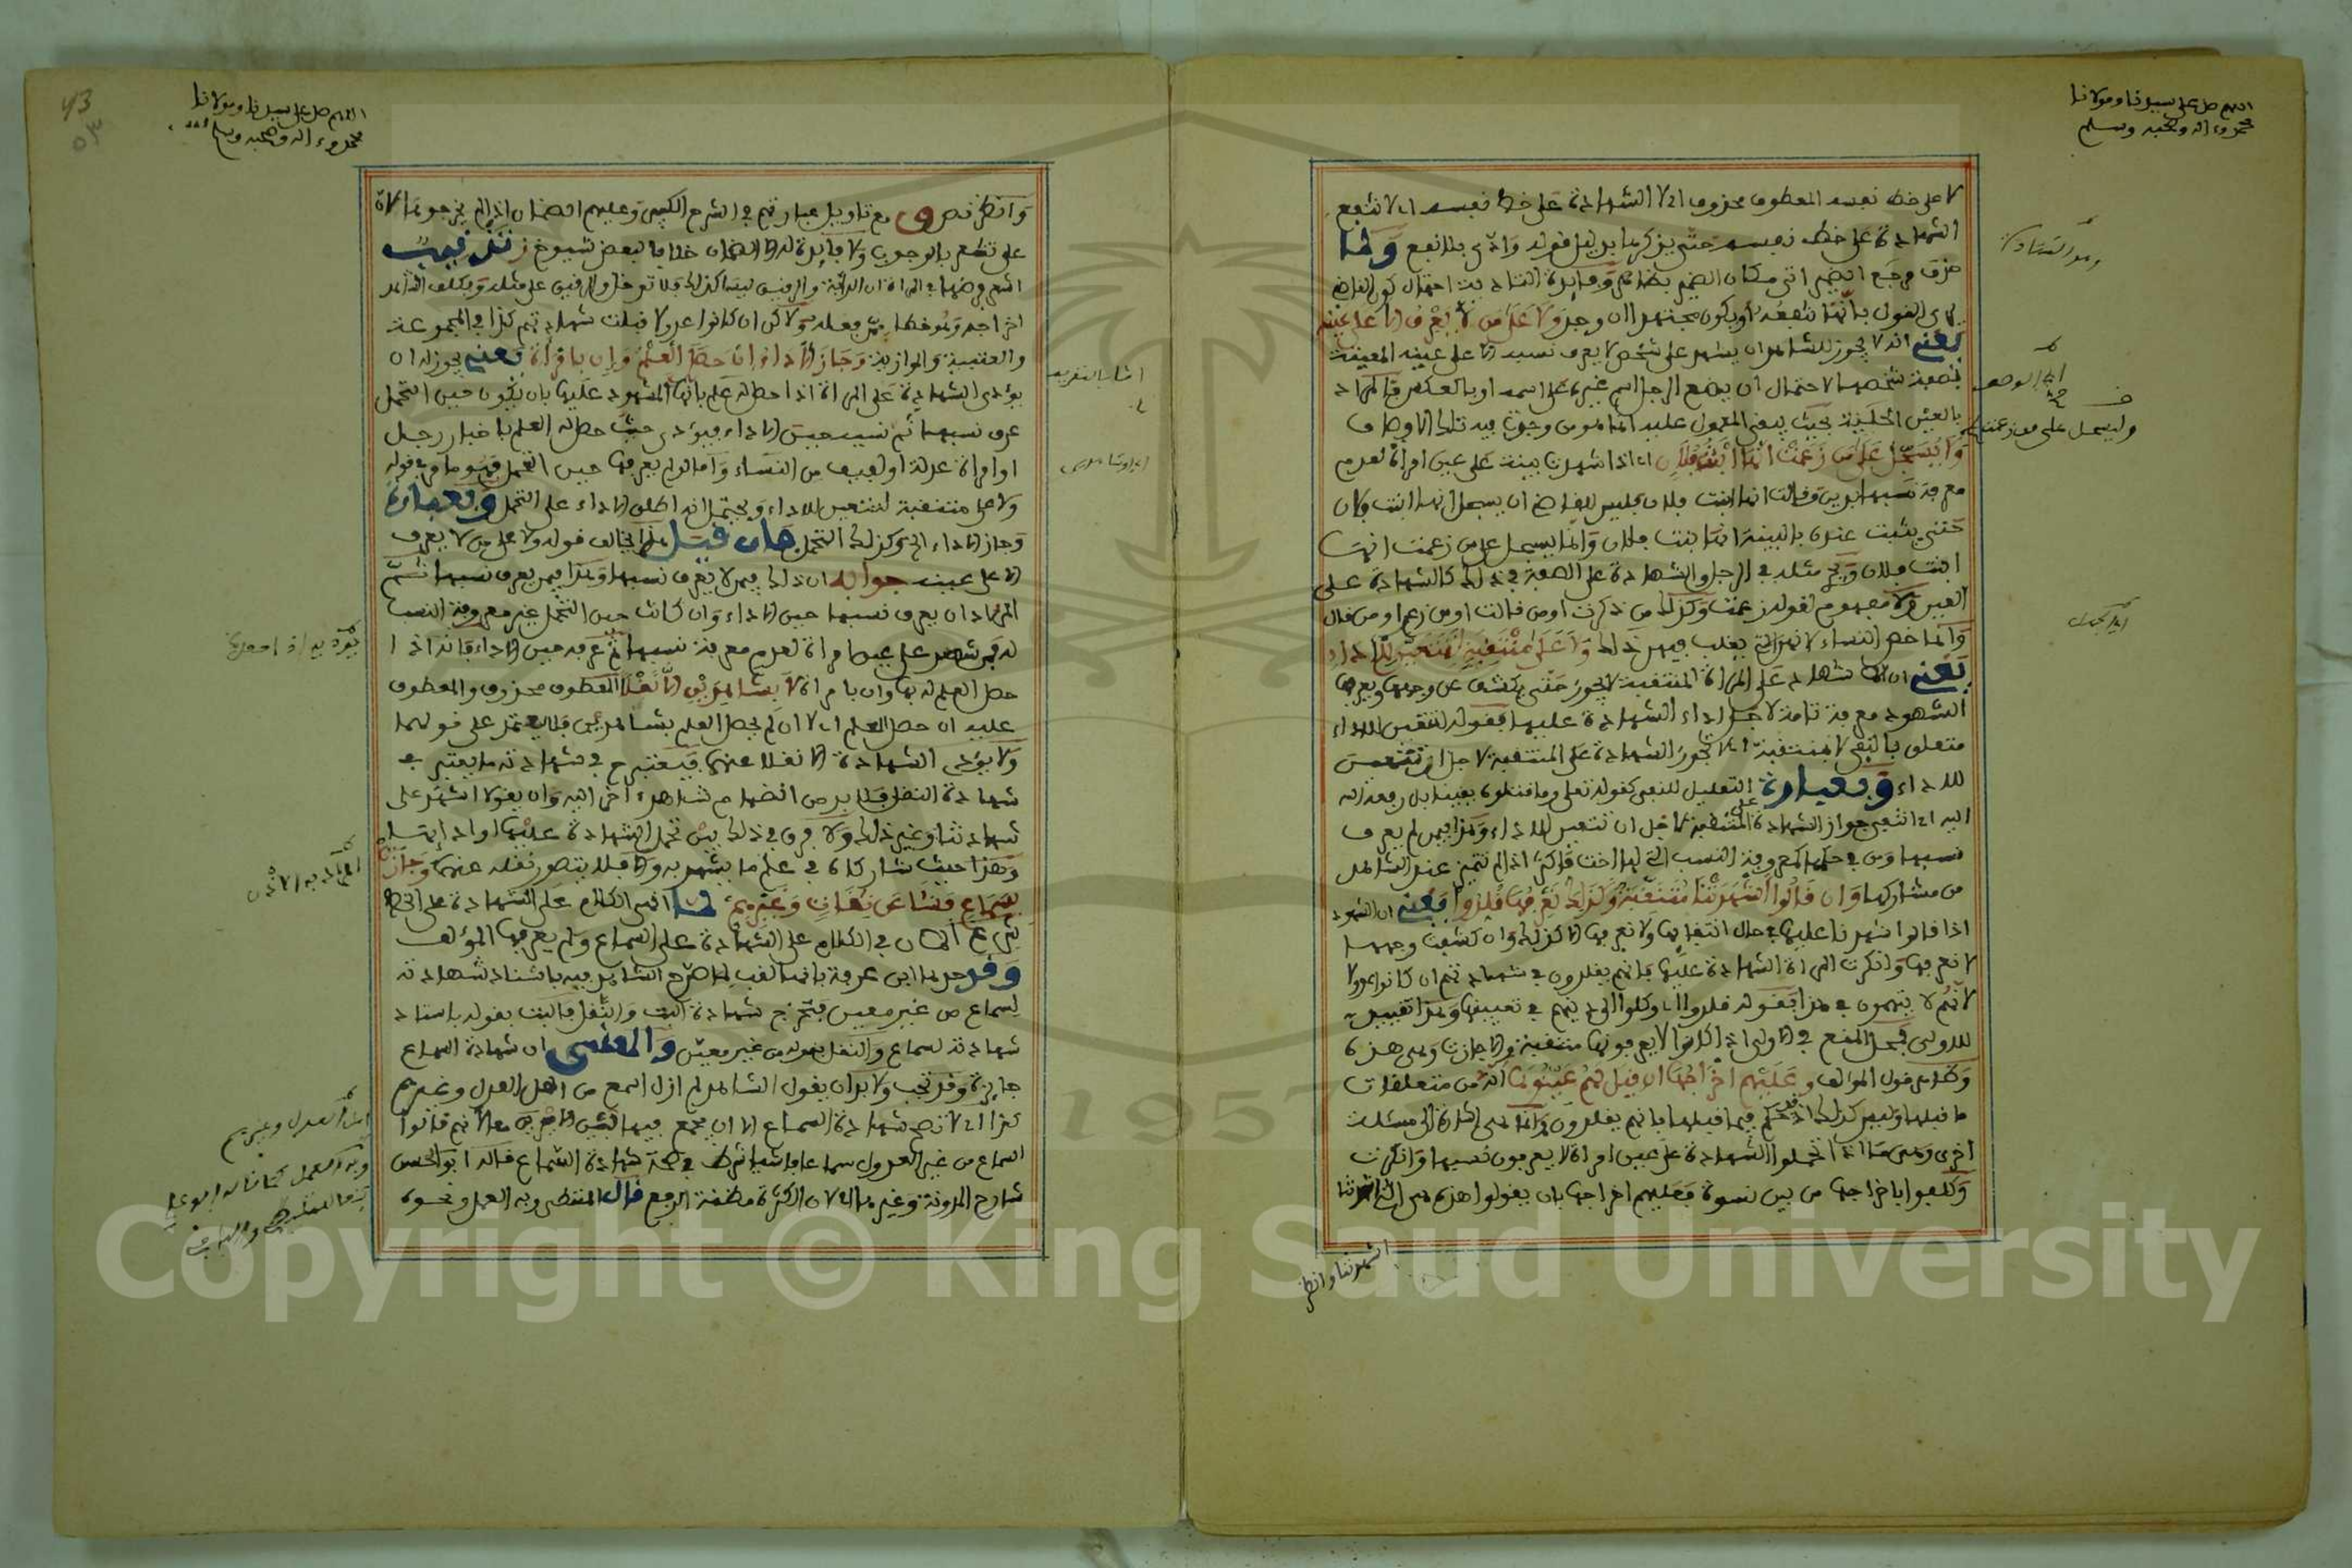 اللهم صل على سيدنا ومولانا
محمد وءاله وصحبه وسلم
لا على خط نفسه المعطوف محذوف اي لا الشهادة على خط نفسه اي لا تنفع
الشهادة على خط نفسه حتى يذكرها بدليل قوله وادى بلا نفع ولما
حذف مرجع الضمير اتى مكان الضمير بظاهر وفايدة التادية احتمال كون القاضي
يرى القول بانها تنفعه او يكون مجتهدا ان وجد ولا على من لا يعرف الا على عينه
يعني انه لا يجوز للشاهد ان يشهد على شخص لا يعرف نسبه الا على عينه المعينة
لشخصه لاحتمال ان يضع الرجل اسم غيره على اسمه او بالعكس والمراد
بالعين الحلية بحيث يبقى المعول عليه انما هو من وجدت فيه تلك الاوصاف
وليسجل على من زعمت انها ابنت فلان اي اذا شهدت بينة على عين امراة لعدم
معرفة نسبها بدين وقالت انها بنت فلان فليس للقاضي ان يسجل انها ابنت فلان
حتى يثبت عنده بالبينة انها بنت فلان وانما يسجل على من زعمت انها
ابنت فلان ويجري مثله في الرجل والشهادة على الصفة في ذلك كالشهادة على
العين ولا مفهوم لقوله زعمت وكذلك من ذكرت او من قالت او من زعم او من قال
وانما خص النساء لانهن التي يغلب فيهن ذلك ولا على منتقبة لتتعين للاداء
يعني ان شهادة على المراة المنتقبة لا تجوز حتى تكشف عن وجهها ويعرفها
الشهود معرفة تامة لاجل اداء الشهادة عليها فقوله لتتعين للاداء
متعلق بالنفي لا بمنتقبة اي لا تجوز الشهادة على المنتقبة لاجل ان تتعين
للاداء وبعبارة التعليل للنفي كقوله تعلى وما قتلوه يقينا بل رفعه الله
اليه اي انتفى جواز الشهادة على المنتقبة لاجل ان تتعين للاداء وهذا فيمن لم يعرف
نسبها ومن في حكمها كمعروفة النسب التي لها اخت فاكثر اذا لم تتميز عند الشاهد
من مشاركها وان قالوا اشهدتنا منتقبة وكذلك نعرفها قلدوا يعني ان الشهود
اذا قالوا شهدنا عليها في حال انتقابها ولا نعرفها الا كذلك وان كشفت وجهها
لا نعرفها وانكرت المراة الشهادة عليها فانهم يقلدون في شهادتهم ان كانوا عدولا
لانهم لا يتهمون في هذا فقوله قلدوا اي وكلوا الى دينهم في تعيينها وهذا تقييد
للاولى فمحل المنع في الاولى اذا كانوا لا يعرفونها منتقبة والا جازت وهي هذه
وظاهر قول المؤلف وعليهم اخراجها ان قيل لهم عينوها انه من متعلقات
ما قبلها وليس كذلك اذ قد حكم فيما قبلها بانهم يقلدون وانما هي اشارة الى مسئلة
اخرى وهي ما اذا تحملوا الشهادة على عين امراة لا يعرفون نسبها وانكرت
وكلفوا باخراجها من بين نسوة فعليهم اخراجها بان يقولوا هذه هي التي اشهدتنا
اشهدتنا وانظر
اي الرجل
اللهم صل على سيدنا ومولانا
محمد وءاله وصحبه وسلم
وانظر نص ق مع تاويل عبارتهم في الشرح الكبير وعليهم الضمان ان لم يخرجوها لانه
على تقطع بالوجوب ولا فايدة له الا الضمان خلافا لبعض شيوخ ز تنبيه
اخراجه ولاكن ان كانوا عدولا قبلت شهادتهم كذا في المجموعة
والعتبية والموازية وجاز الاداء ان حصل العلم وان بامراة يعني يجوز له ان
يؤدي الشهادة على المراة اذا حصل له علم بانها المشهود عليها بان يكون حين التحمل
عرف نسبها ثم نسيه حين الاداء فيؤدي حيث حصل له العلم باخبار رجل
او امراة عدلة او لفيف من النساء واما لو لم يعرفها حين التحمل فهو ما مر في قوله
ولا على منتقبة لتتعين للاداء ويحتمل انه اطلق الاداء على التحمل وبعبارة
وجاز الاداء الخ وكذلك التحمل فان قيل هذا يخالف قوله ولا على من لا يعرف
الا على عينه جوابه ان ذلك فيمن لا يعرف نسبها وهذا فيمن يعرف نسبها ثم
المراد ان يعرف نسبها حين الاداء وان كانت حين التحمل غير معروفة النسب
له فمن شهد على عين امراة لعدم معرفة نسبها ثم عرفه حين الاداء فانه اذا
حصل العلم له بها وان بامراة لا بشاهدين الا نقلا المعطوف محذوف والمعطوف
عليه ان حصل العلم اي لا ان لم يحصل العلم بشاهدين فلا يعتمد على قولهما
ولا يؤدي الشهادة الا نقلا عنهما فيعتبر ح في شهادته ما يعتبر في
شهادة النقل فلا بد من انضمام شاهد اخر اليه وان يقولا اشهد على
شهادتنا وغير ذلك ولا فرق في ذلك بين تحمل الشهادة عليها او ادائها
وهذا حيث شاركاه في علم ما يشهد به والا فلا يتصور نقله عنهما وجازت
بسماع فشا عن ثقات وغيرهم لما انهى الكلام على الشهادة على الخط
شرع الان في الكلام على الشهادة على السماع ولم يعرفها المؤلف
وقد حدها ابن عرفة بانها لقب لما صرح الشاهد فيه باسناد شهادته
لسماع من غير معين فتخرج شهادة البت والنقل فالبت بقوله باسناد
شهادته لسماع والنقل بقوله من غير معين والمعنى ان شهادة السماع
جايزة وقد تجب ولا بد ان يقول الشاهد لم ازل اسمع من اهل العدل وغيرهم
كذا اي لا تصح شهادة السماع الا ان يجمع فيها بين الامرين معا لانهم قالوا
السماع من غير العدول سماعا فاشيا شرط في صحة شهادة السماع قاله ابو الحسن
شارح المدونة وغيره اي لان الكثرة مظنة الرفع قال المتيطي وبه العمل ونحوه
اي العدل وغيرهم
وبه العمل كما قاله ابو علي